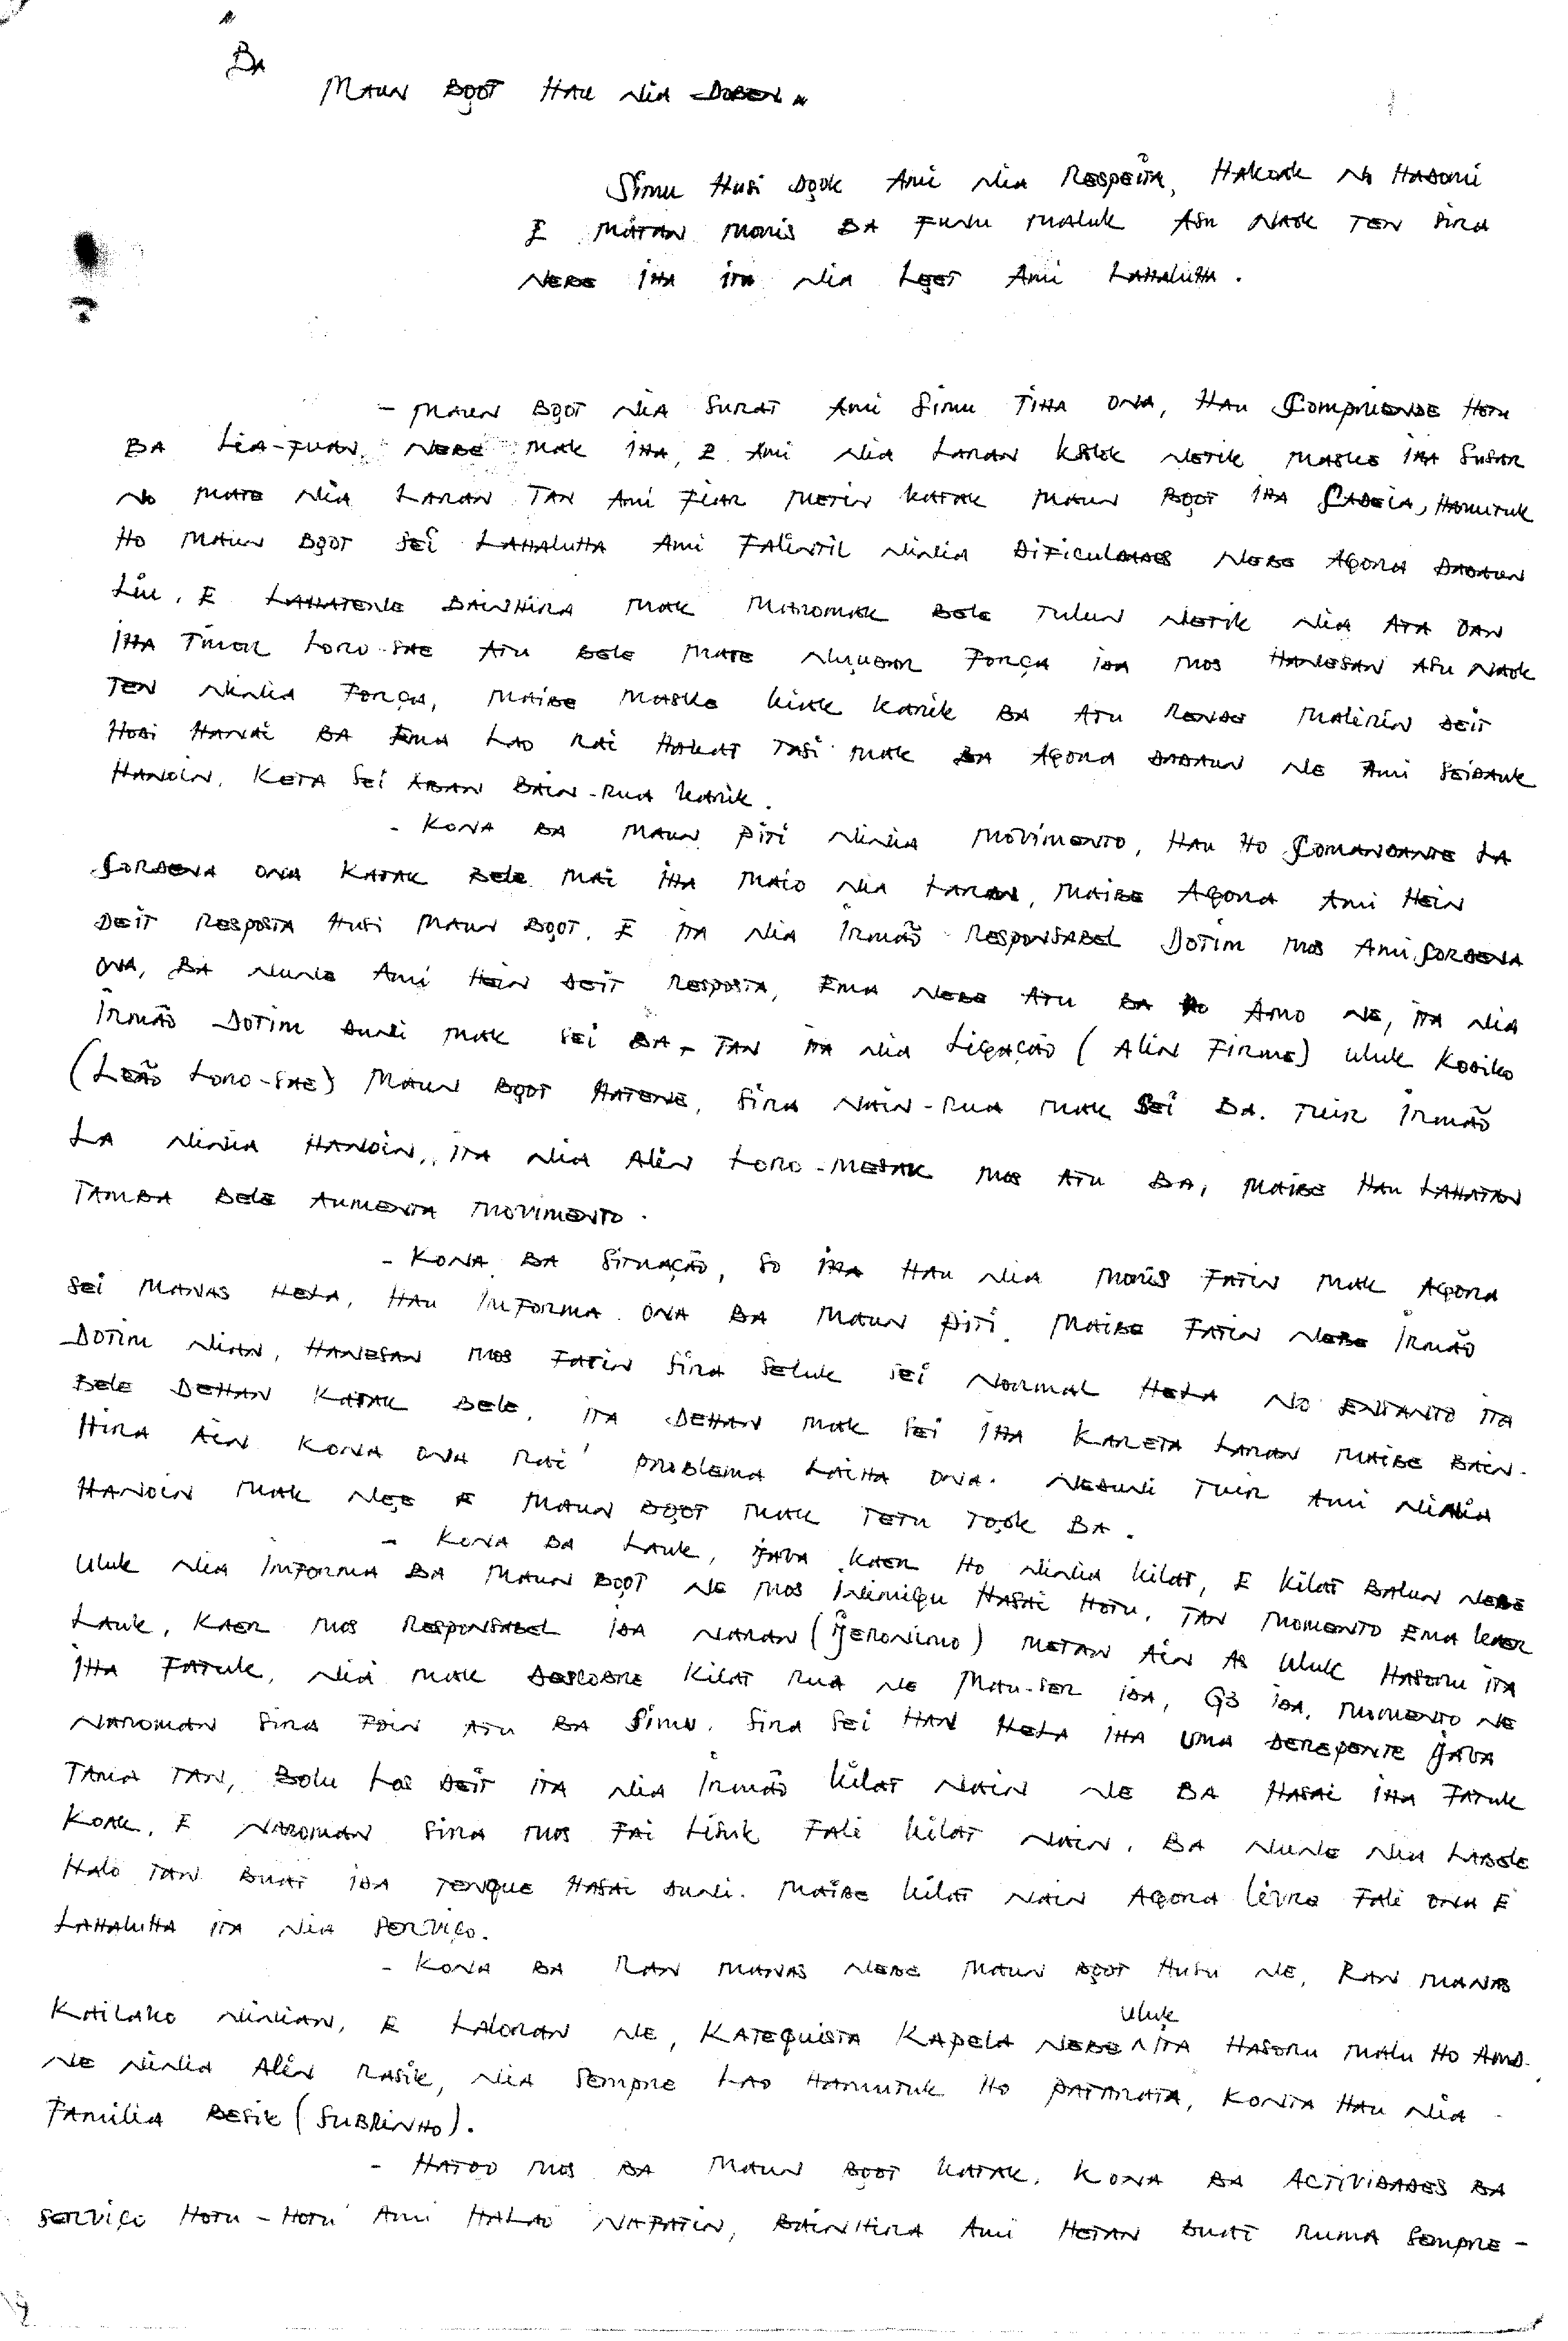 BA
MAUN BOOT HAU NIA DOBEN
SIMU HUSI DOOK AMI NIA RESPEITA, HAKOAK NO HADOMI
E MATAN MORIS BA FUNU MALUK ASU NAOK TEN SIRA
NEBE IHA ITA NIA LEET AMI LAHALUHA.
- MAUN BOOT NIA SURAT AMI SIMU TIHA ONA, HAU COMPRIENDE HOTU
BA LIA-FUAN NEBE MAK IHA, E AMI NIA LARAN KSOLOK NETIK MASKE IHA SUSAR
NO MATE NIA LARAN TAN AMI FIAR METIN KATAK MAUN BOOT IHA CADEIA, HAMUTUK
HO MAUN BOOT SEI LAHALUHA AMI FALINTIL NINIA DIFICULDADES NEBE AGORA DADAUN
LIU, E LAHATENE BAINHIRA MAK MAROMAK BELE TULUN NETIK NIA ATA OAN
IHA TIMOR LORO-SAE ATU BELE MATE FORÇA IDA MOS HANESAN ASU NAOK
TEN NINIA FORÇA, MAIBE MASKE KIAK KARIK BA ATU RENDE MALIRIN DEIT
HODI HANAI BA EMA LAO RAI HAKAT TASI MAK BA AGORA DADAUN NE AMI SEIDAUK
HANOIN, KETA SEI ABAN BAIN-RUA KARIK.
- KONA BA MAUN PITI NINIA MOVIMENTO, HAU HO COMANDANTE LA
CORDENA ONA KATAK BELE MAI IHA MAIO NIA LARAN, MAIBE AGORA AMI HEIN
DEIT RESPOSTA HUSI MAUN BOOT, E ITA NIA IRMÃO RESPONSABEL DOTIM MOS AMI CORDENA
ONA, BA NUNE AMI HEIN DEIT RESPOSTA, EMA NEBE ATU BA HO AMO NE, ITA NIA
IRMÃO DOTIM DUNI MAK SEI BA, TAN ITA NIA LIGAÇÃO (ALIN FIRME) ULUK KODIKO
(LEÃO LORO-SAE) MAUN BOOT HATENE, SIRA NAIN-RUA MAK SEI BA. TUIR IRMÃO
LA NINIA HANOIN, ITA NIA ALIN LORO-MESAK MOS ATU BA, MAIBE HAU LAHATAN
TAMBA BELE AUMENTA MOVIMENTO.
- KONA BA SITUAÇÃO, SO IHA HAU NIA MORIS FATIN MAK AGORA
SEI MANAS HELA, HAU INFORMA ONA BA MAUN PITI. MAIBE FATIN NEBE IRMÃO
DOTIM NIAN, HANESAN MOS FATIN SIRA SELUK SEI NORMAL HELA NO ENTANTO ITA
BELE DEHAN KATAK BELE, ITA DEHAN MAK SEI IHA KARETA LARAN MAIBE BAIN-
HIRA AIN KONA ONA RAI PROBLEMA LAIHA ONA. NEDUNI TUIR AMI NINIA
HANOIN MAK NEE E MAUN BOOT MAK TETU TOOK BA.
- KONA BA LAUK, JAVA KAER HO NINIA KILAT, E KILAT BALUN NEBE
ULUK NIA INFORMA BA MAUN BOOT NE MOS INIMIGU HASAI HOTU, TAN MOMENTO EMA KAER
LAUK, KAER MOS RESPONSABEL IDA NARAN (JERONIMO) METAN AIN AS ULUK HASORU ITA
IHA FATUK, NIA MAK DESCOBRE KILAT RUA NE MAU-SER IDA, G3 IDA, MOMENTO NE
NAROMAN SIRA FOIN ATU BA SIMU. SIRA SEI HAN HELA IHA UMA DEREPENTE JAVA
TAMA TAN, BOLU LOS DEIT ITA NIA IRMÃO KILAT NAIN NE BA HASAI IHA FATUK
KOAK, E NAROMAN SIRA MOS FAI LISUK FALI KILAT NAIN, BA NUNE NIA LABELE
HALO TAN BUAT IDA TENQUE HASAI DUNI. MAIBE KILAT NAIN AGORA LIVRE FALI ONA E
LAHALUHA ITA NIA SERVIÇO.
- KONA BA RAN MANAS NEBE MAUN BOOT HUSU NE, RAN MANAS
KAILAKO NINIAN, E LALORAN NE, KATEQUISTA KAPELA NEBE ULUK ITA HASORU MALU HO AMO.
NE NINIA ALIN RASIK, NIA SEMPRE LAO HAMUTUK HO PATARATA, KONTA HAU NIA
FAMILIA BESIK (SUBRINHO).
- HATOO MOS BA MAUN BOOT KATAK, KONA BA ACTIVIDADES BA
SERVIÇO HOTU-HOTU AMI HALAO NAFATIN, BAINHIRA AMI HETAN BUAT RUMA SEMPRE-